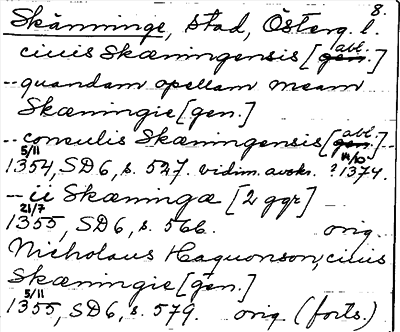 8.
Skänninge, stad, Österg. l.
ciuis Skæningensis [gen. abl.]
-- quandam opellam meam
Skæningie [gen.]
-- consulis Skæningensis [gen. abl.] --
5/11 1354, SD 6, s. 527. vidim. avskr. ? 14/10 1374.
-- ii Skæninga [2 ggr]
21/7 1355, SD 6, s. 566. orig.
Nicholaus Haquonson, ciuis
Skæningie [gen.]
5/11 1355, SD 6, s. 579. orig (forts.)